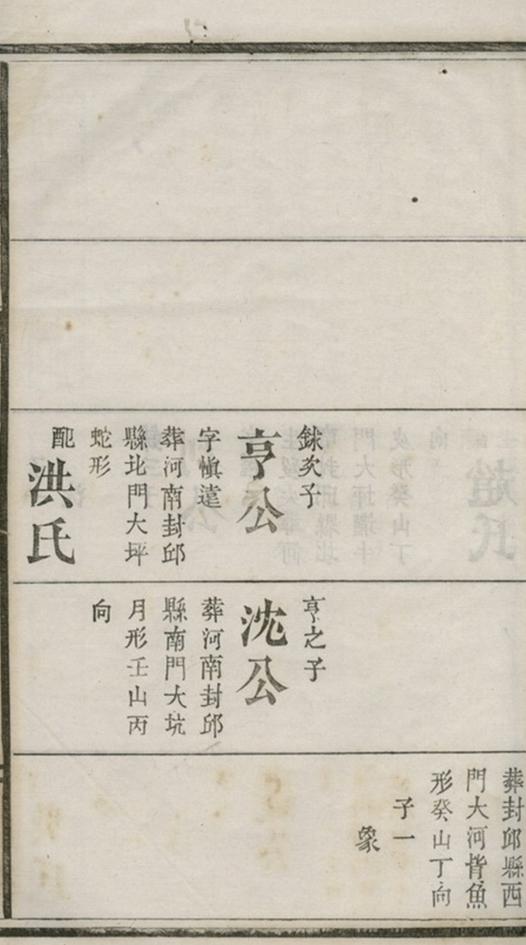 銶次子
亨公
字愼達
葬河南封邱
縣北門大坪
蛇形
配洪氏
亨之子
沈公
葬河南封邱
縣南門大坑
月形壬山丙
向
葬封邱縣西
門大河背魚
形癸山丁向
子一
象